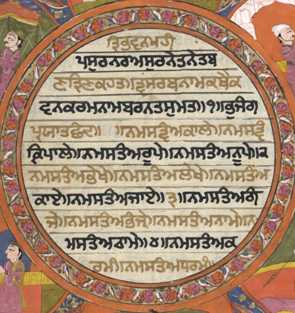 ਤ੍ਰਿਭਵਨਮਹੀ
ਪਸੁਰਨਰਅਸੁਰਨੇਤਨੇਤਬ
ਨਤ੍ਰਿਣਕਹਤ॥ਤ੍ਵਸਰਬਨਾਮਕਥੈਕ
ਵਨਕਰਮਨਾਮਬਰਨਤਸੁਮਤ॥੧॥ਭੁਜੰਗ
ਪ੍ਰਯਾਤਛੰਦ॥ ॥ਨਮਸਤ੍ਵੰਅਕਾਲੇ॥ਨਮਸਤ੍ਵੰ
ਕ੍ਰਿਪਾਲੇ॥ਨਮਸਤੰਅਰੂਪੇ॥ਨਮਸਤੰਅਨੂਪੇ॥੨
ਨਮਸਤੰਅਭੇਖੇ॥ਨਮਸਤੰਅਲੇਖੇ॥ਨਮਸਤੰਅ
ਕਾਏ॥ਨਮਸਤੰਅਜਾਏ॥੩॥ਨਮਸਤੰਅਗੰ
ਜੇ॥ਨਮਸਤੰਅਭੰਜੇ॥ਨਮਸਤੰਅਨਾਮੇ॥ਨ
ਮਸਤੰਅਠਾਮੇ॥੪॥ਨਮਸਤੰਅਕ
ਰਮੰ॥ਨਮਸਤੰਅਧਰਮੰ॥